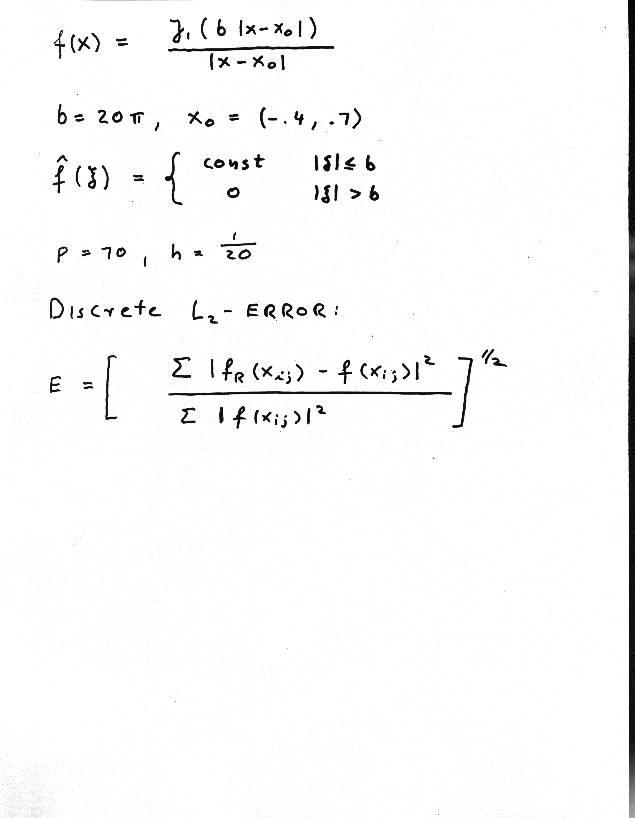 f(x) = J₁(b |x-x₀|) / |x-x₀|
b = 20π, x₀ = (-.4, .7)
f̂(ξ) = { const |ξ| ≤ b
0 |ξ| > b
P = 70, h = 1/20
Discrete L₂-ERROR:
E = [ Σ |f_R(x_ij) - f(x_ij)|² / Σ |f(x_ij)|² ]^1/2